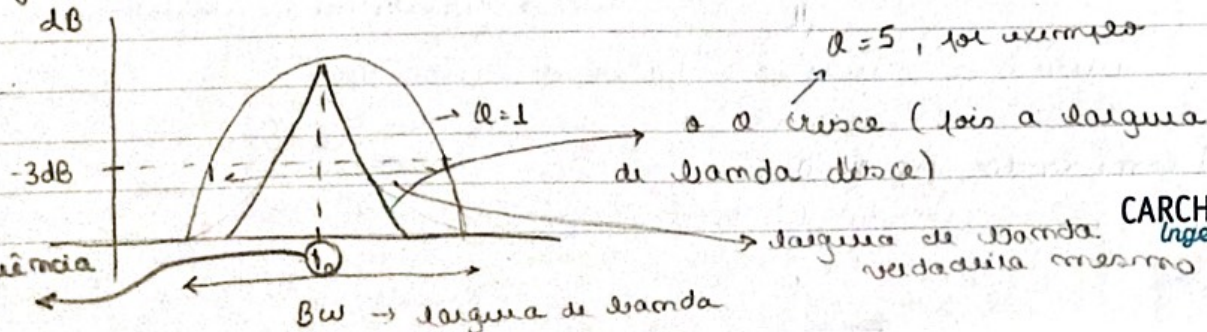 dB
Q=5, por exemplo
→ Q=1
o Q cresce (pois a largura
-3dB
de banda desce)
CARCH
Inge
→ largura de banda
verdadeira mesmo
uência
f₀
BW → largura de banda